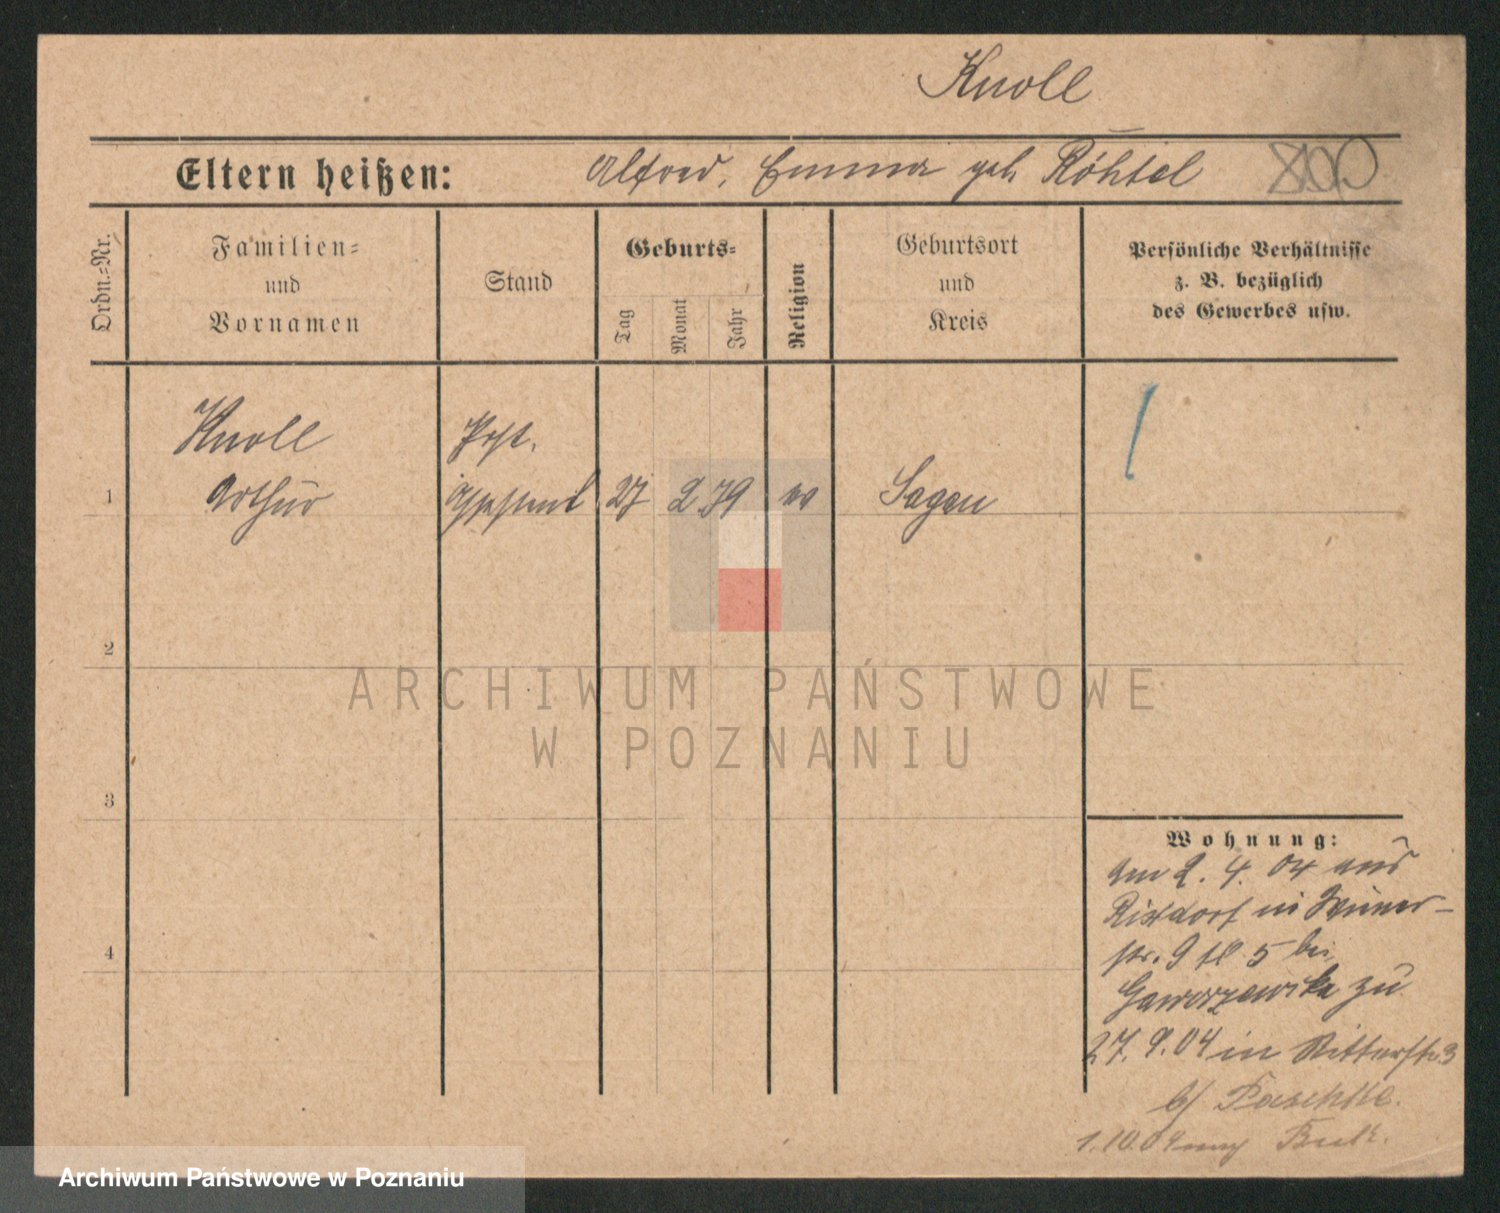 Knoll
Eltern heißen: Alfred, Emma geb Röhtel
Ordn.-Nr.
Familien-
und
Vornamen
Stand
Geburts-
Tag
Monat
Jahr
Religion
Geburtsort
und
Kreis
Persönliche Verhältnisse
z. B. bezüglich
des Gewerbes usw.
Knoll
Post.
1 Arthur 27 2 79 ev Sagan
2
ARCHIWUM PAŃSTWOWE
W POZNANIU
3
Wohnung:
am 2. 4. 04 aus
Rixdorf in
str. 9 5 bei
zu
27. 9. 04 in Ritterstr 3
b/ Paschke.
1.10.04 Buk.
4
Archiwum Państwowe w Poznaniu